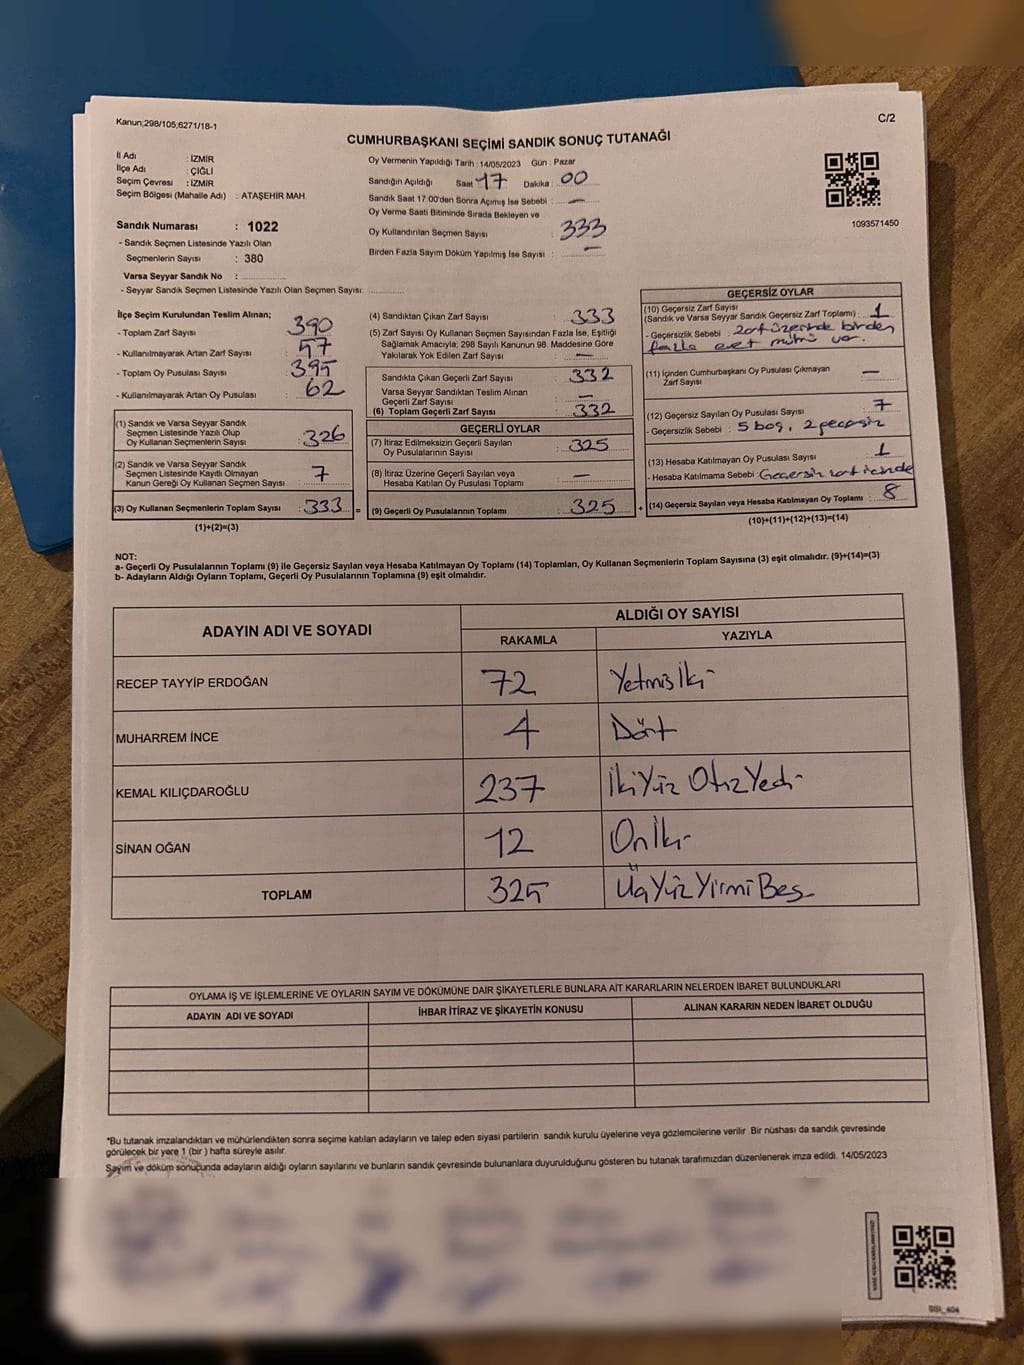 Kanun;298/105,6271/18-1
C/2
CUMHURBAŞKANI SEÇİMİ SANDIK SONUÇ TUTANAĞI
İl Adı : İZMİR
İlçe Adı : ÇİĞLİ
Seçim Çevresi : İZMİR
Seçim Bölgesi (Mahalle Adı) : ATAŞEHİR MAH.
Sandık Numarası : 1022
- Sandık Seçmen Listesinde Yazılı Olan
Seçmenlerin Sayısı : 380
Varsa Seyyar Sandık No :
- Seyyar Sandık Seçmen Listesinde Yazılı Olan Seçmen Sayısı:
Oy Vermenin Yapıldığı Tarih : 14/05/2023 Gün : Pazar
Sandığın Açıldığı Saat 17 Dakika : 00
Sandık Saat 17:00'den Sonra Açımış İse Sebebi : —
Oy Verme Saati Bitiminde Sırada Bekleyen ve
Oy Kullandırılan Seçmen Sayısı : 333
Birden Fazla Sayım Döküm Yapılmış İse Sayısı : —
1093571450
İlçe Seçim Kurulundan Teslim Alınan;
- Toplam Zarf Sayısı : 390
- Kullanılmayarak Artan Zarf Sayısı : 57
- Toplam Oy Pusulası Sayısı : 395
- Kullanılmayarak Artan Oy Pusulası : 62
(1) Sandık ve Varsa Seyyar Sandık
Seçmen Listesinde Yazılı Olup
Oy Kullanan Seçmenlerin Sayısı : 326
(2) Sandık ve Varsa Seyyar Sandık
Seçmen Listesinde Kayıtlı Olmayan
Kanun Gereği Oy Kullanan Seçmen Sayısı : 7
(3) Oy Kullanan Seçmenlerin Toplam Sayısı : 333 =
(1)+(2)=(3)
(4) Sandıktan Çıkan Zarf Sayısı : 333
(5) Zarf Sayısı Oy Kullanan Seçmen Sayısından Fazla İse, Eşitliği
Sağlamak Amacıyla; 298 Sayılı Kanunun 98. Maddesine Göre
Yakılarak Yok Edilen Zarf Sayısı : —
Sandıkta Çıkan Geçerli Zarf Sayısı : 332
Varsa Seyyar Sandıktan Teslim Alınan
Geçerli Zarf Sayısı : —
(6) Toplam Geçerli Zarf Sayısı : 332
GEÇERLİ OYLAR
(7) İtiraz Edilmeksizin Geçerli Sayılan
Oy Pusulalarının Sayısı : 325
(8) İtiraz Üzerine Geçerli Sayılan veya
Hesaba Katılan Oy Pusulası Toplamı : —
(9) Geçerli Oy Pusulalarının Toplamı : 325 +
GEÇERSİZ OYLAR
(10) Geçersiz Zarf Sayısı
(Sandık ve Varsa Seyyar Sandık Geçersiz Zarf Toplamı) : 1
- Geçersizlik Sebebi : zarf üzerinde birden
fazla evet mührü var.
(11) İçinden Cumhurbaşkanı Oy Pusulası Çıkmayan
Zarf Sayısı : —
(12) Geçersiz Sayılan Oy Pusulası Sayısı : 7
- Geçersizlik Sebebi : 5 boş, 2 geçersiz
(13) Hesaba Katılmayan Oy Pusulası Sayısı : 1
- Hesaba Katılmama Sebebi : Geçersiz zarf içinde
(14) Geçersiz Sayılan veya Hesaba Katılmayan Oy Toplamı : 8
(10)+(11)+(12)+(13)=(14)
NOT:
a- Geçerli Oy Pusulalarının Toplamı (9) ile Geçersiz Sayılan veya Hesaba Katılmayan Oy Toplamı (14) Toplamları, Oy Kullanan Seçmenlerin Toplam Sayısına (3) eşit olmalıdır. (9)+(14)=(3)
b- Adayların Aldığı Oyların Toplamı, Geçerli Oy Pusulalarının Toplamına (9) eşit olmalıdır.
ADAYIN ADI VE SOYADI
ALDIĞI OY SAYISI
RAKAMLA YAZIYLA
RECEP TAYYİP ERDOĞAN 72 Yetmiş İki
MUHARREM İNCE 4 Dört
KEMAL KILIÇDAROĞLU 237 İki Yüz Otuz Yedi
SİNAN OĞAN 12 On İki
TOPLAM 325 Üç Yüz Yirmi Beş
OYLAMA İŞ VE İŞLEMLERİNE VE OYLARIN SAYIM VE DÖKÜMÜNE DAİR ŞİKAYETLERLE BUNLARA AİT KARARLARIN NELERDEN İBARET BULUNDUKLARI
ADAYIN ADI VE SOYADI İHBAR İTİRAZ VE ŞİKAYETİN KONUSU ALINAN KARARIN NEDEN İBARET OLDUĞU
*Bu tutanak imzalandıktan ve mühürlendikten sonra seçime katılan adayların ve talep eden siyasi partilerin sandık kurulu üyelerine veya gözlemcilerine verilir .Bir nüshası da sandık çevresinde
görülecek bir yere 1 (bir ) hafta süreyle asılır.
Sayım ve döküm sonucunda adayların aldığı oyların sayılarını ve bunların sandık çevresinde bulunanlara duyurulduğunu gösteren bu tutanak tarafımızdan düzenlenerek imza edildi. 14/05/2023